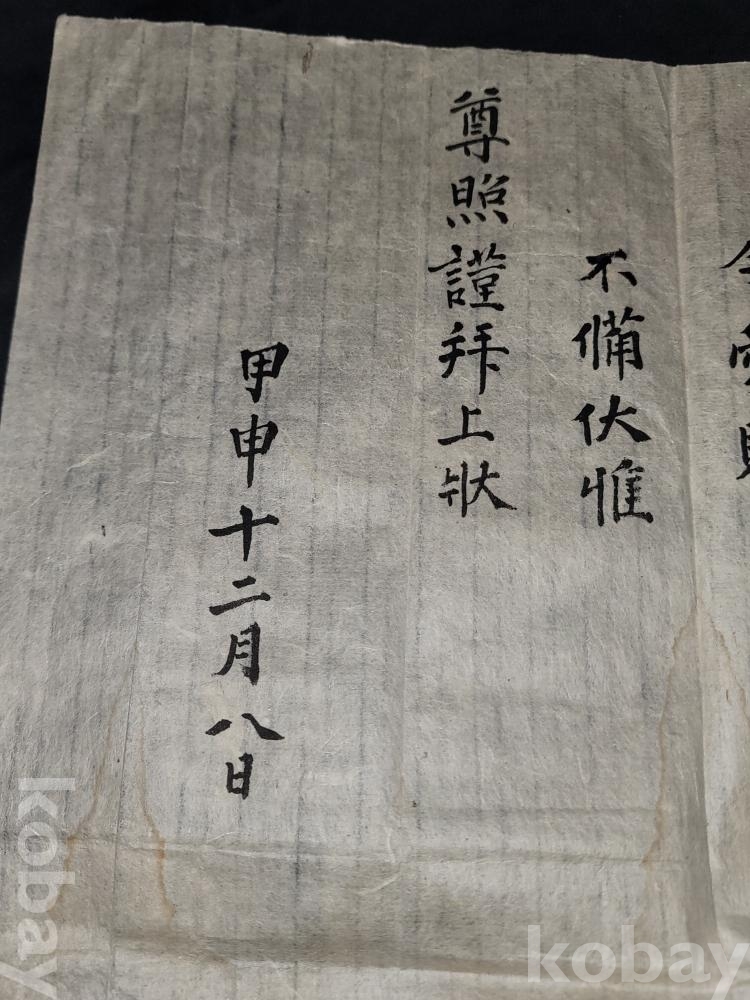 不備伏惟
尊照謹拜上狀
甲申十二月八日
kobay
kobay